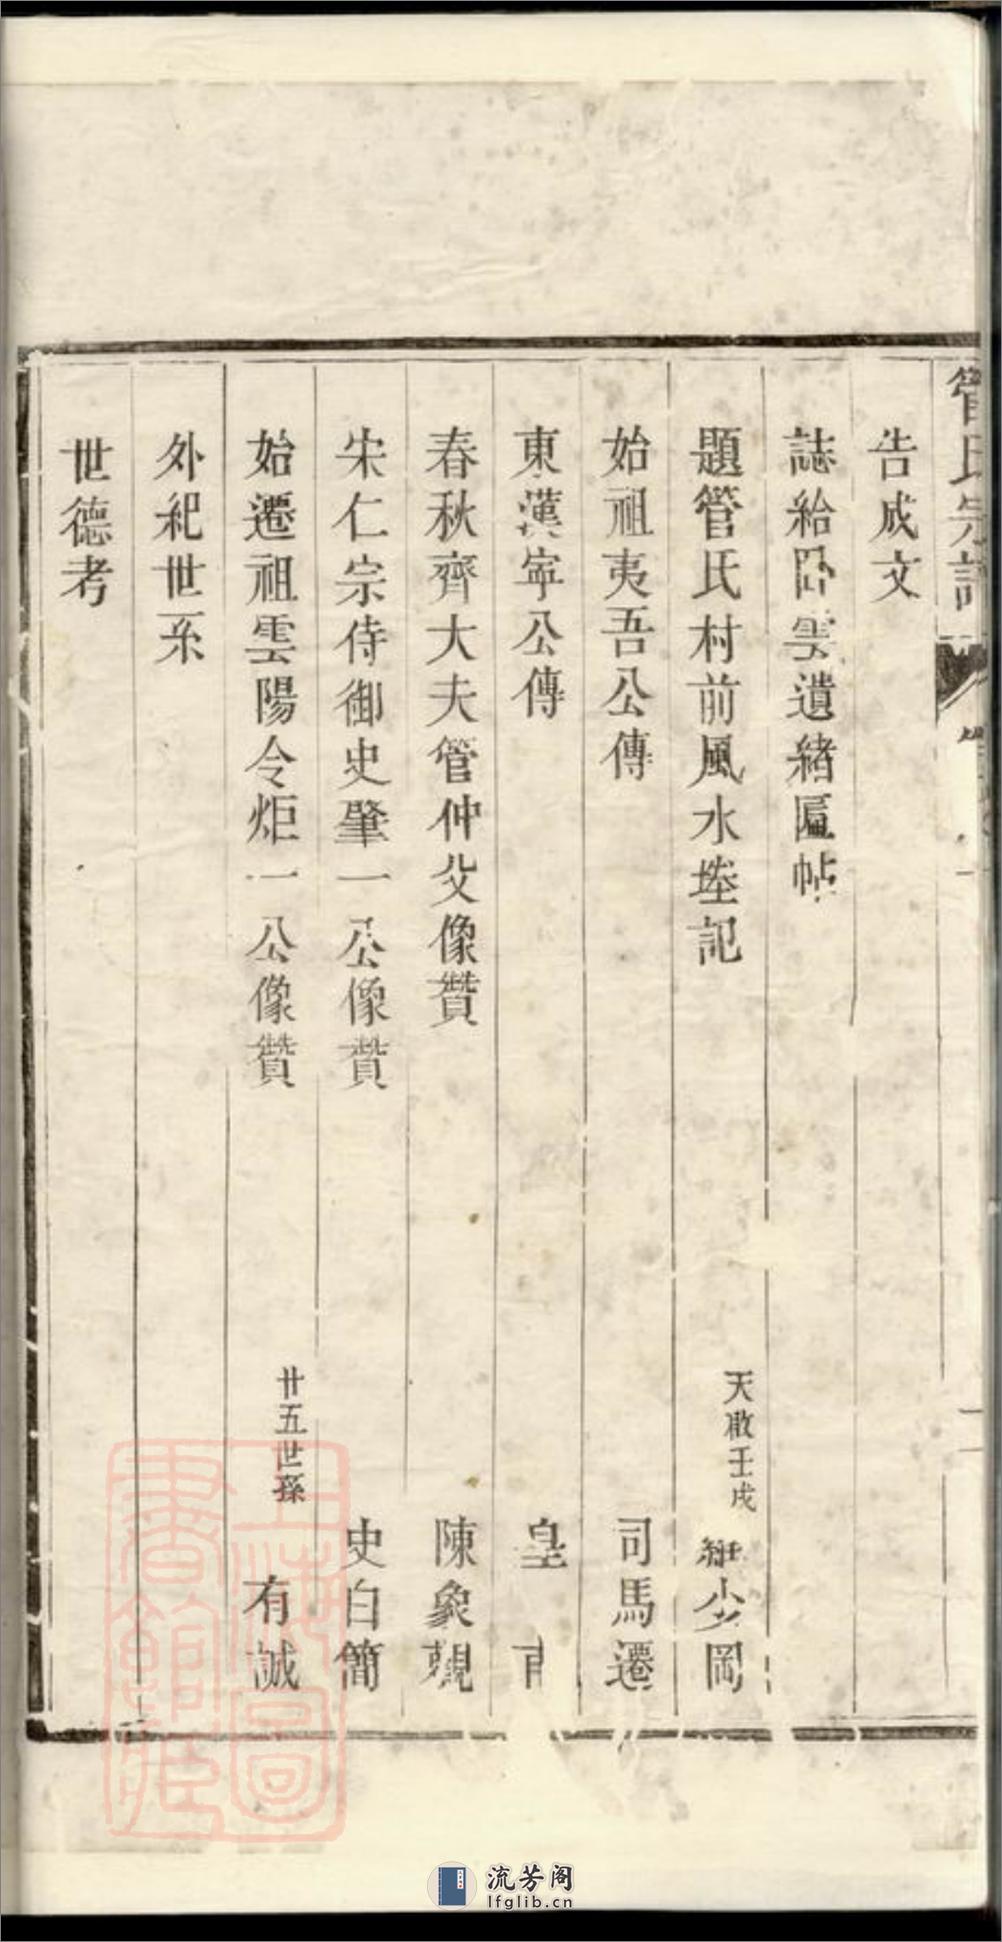 管氏宗譜
告成文
誌給臥雲遺緒匾帖
題管氏村前風水塋記 天啟壬戌 少岡
始祖夷吾公傳 司馬遷
東漢寧公傳 皇甫
春秋齊大夫管仲父像贊 陳象觀
宋仁宗侍御史肇一公像贊 史白簡
始遷祖雲陽令炬一公像贊 廿五世孫 有誠
外紀世系
世德考
上海圖書館藏
流芳阁
lfglib.cn